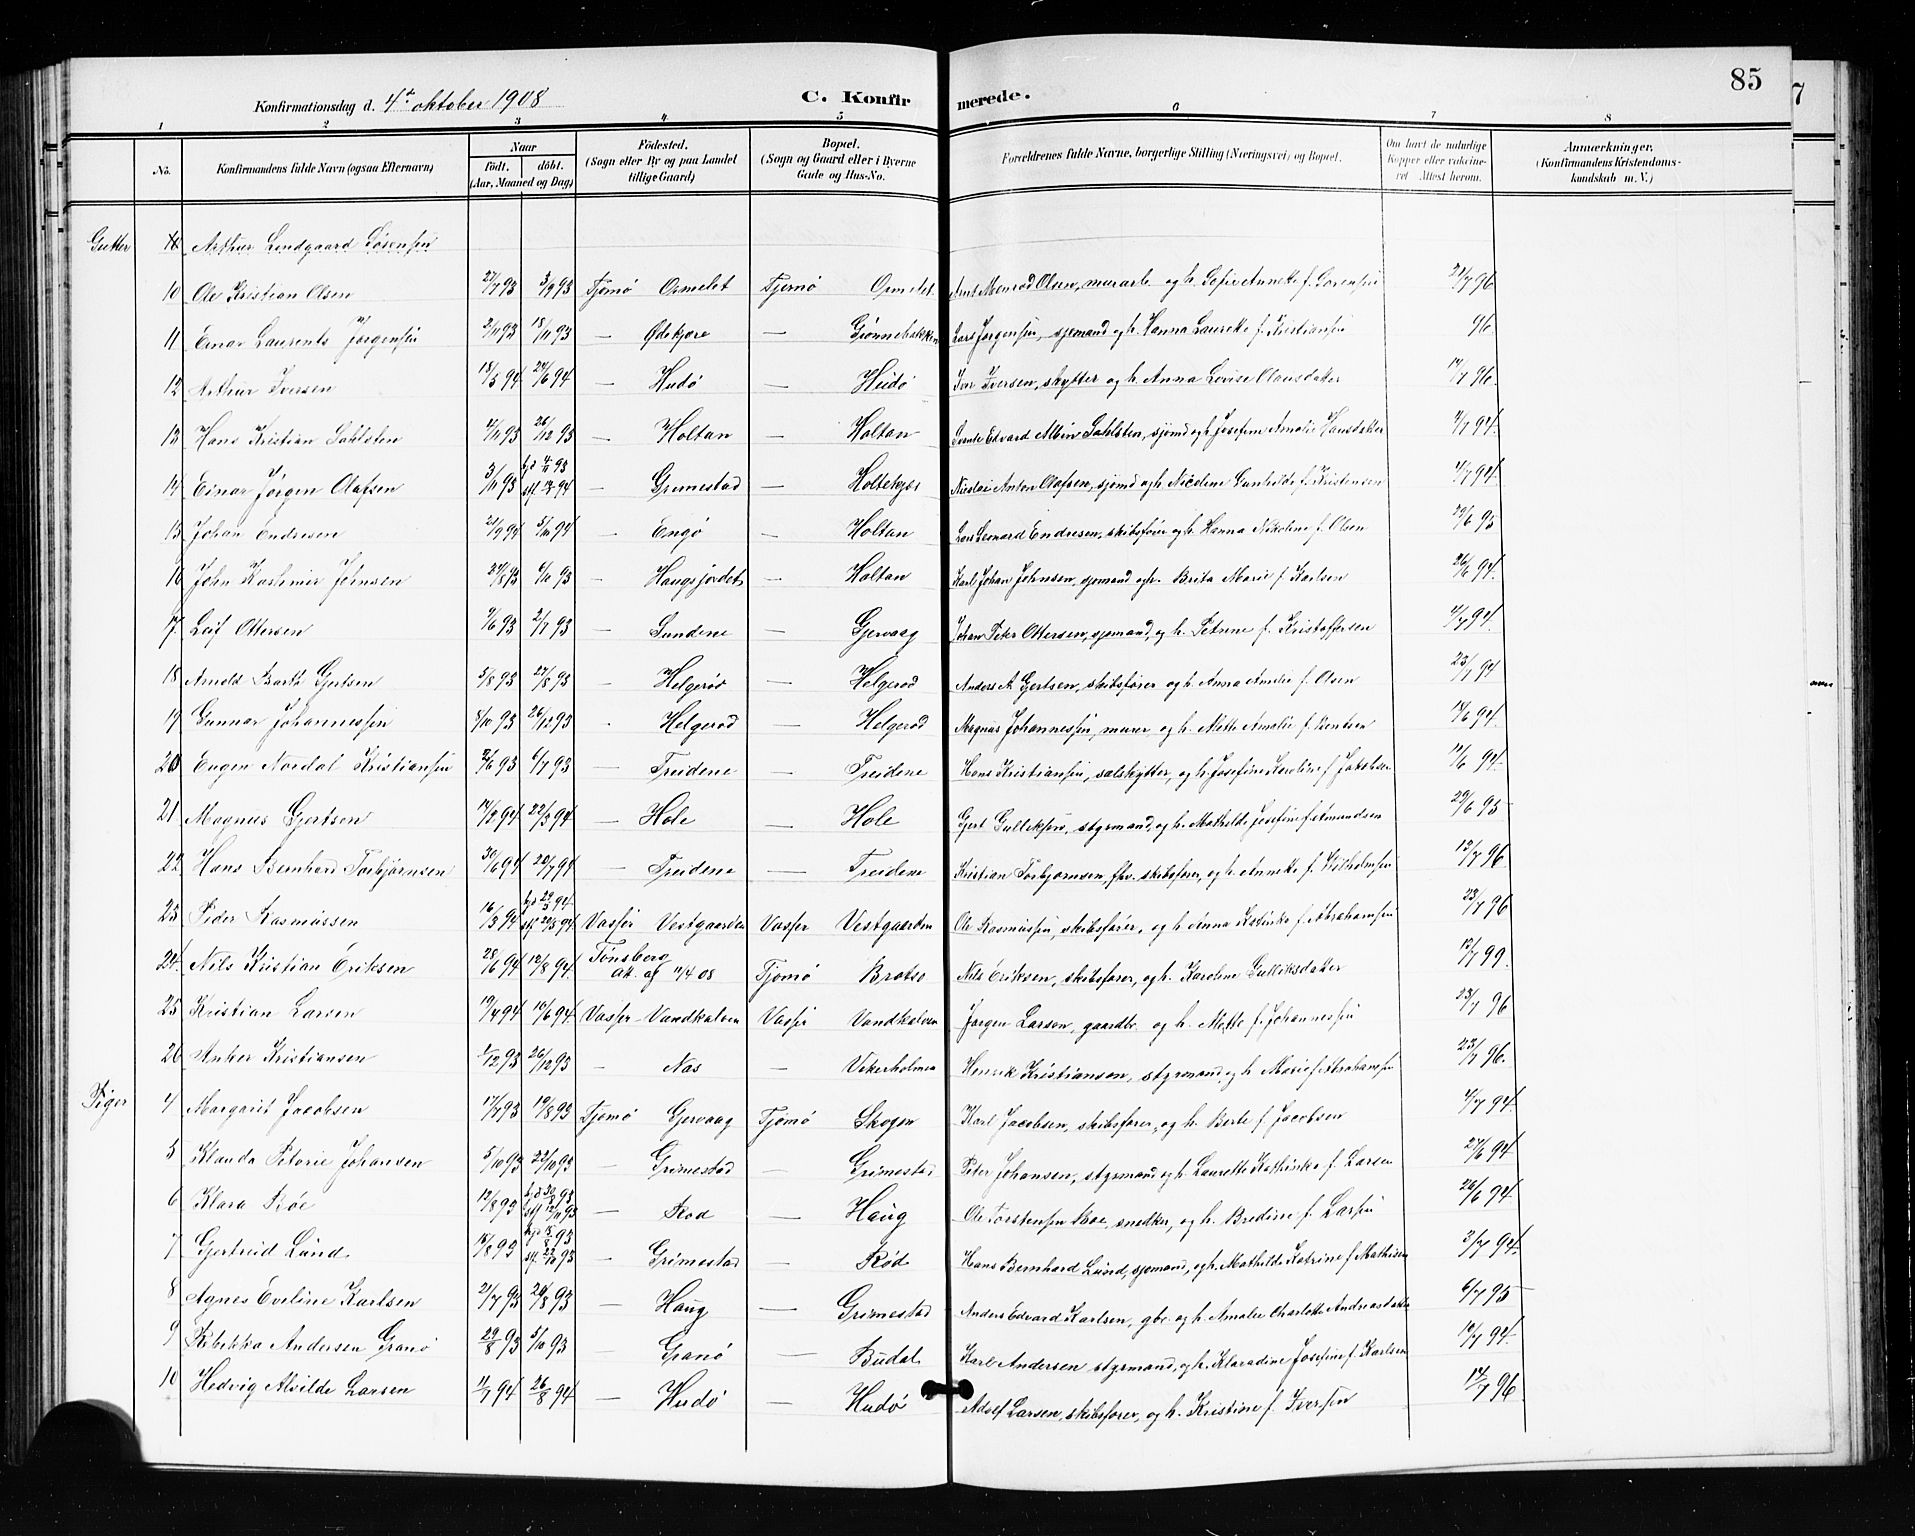 85
Konfirmationsdag d. 4de oktober 1908 C. Konfirmerede.
1 2 3 4 5 6 7 8
No. Konfirmandens fulde Navn (ogsaa Efternavn) Naar født. døbt. (Aar, Maaned og Dag) Fødested. (Sogn eller By og paa Landet tillige Gaard) Bopæl. (Sogn og Gaard eller i Byerne Gade og Hus-No. Forældrenes fulde Navne, borgerlige Stilling (Næringsvei) og Bopæl. Om havt de naturlige Kopper eller vaccineret Attest herom. Anmærkninger. (Konfirmandens Kristendomskundskab m. V.)
Gutter Arthur Lindgaard
10 Ole Kristian Olsen 27/7 93 3/9 93 Tjømø Ormelet Tjømø Ormelet Arnt Monrad Olsen, murarb. og h. Sofie Annette f. Sørensen 21/7 96
11 Einar Laurents Jørgensen 2/11 93 18/11 93 — Ødekjære — Grønnebakken Lars Jørgensen, sjømand og h. Hanna Laurette f. Kristiansen 96
12 Arthur Iversen 18/5 94 24/6 94 — Hudø — Hudø Iver Iversen, skytter og h. Anna Lovise Clausdatter 14/7 96.
13 Hans Kristian Dahlsten 93 26/12 93 — Holtan — Holtan Edvard Albin Dahlsten, sjømd og h. Josefine Amalie Hansdatter 4/7 94.
14 Einar Jørgen Olafsen 3/11 93 — Grimestad — Holtekjær Nicolai Anton Olafsen, sjømd og h. Nicoline Gunhilde f. Kristensen 4/7 94.
15 Johan Endresen 94 5/11 94 — Engø — Holtan Lars Leonard Endresen, skibsfører og h. Hanna Nikoline f. Olsen 29/6 95
16 John Kashmir Johnsen 27/8 93 93 — Haugsjordet — Holtan Karl Johan Johnsen, sjømand og h. Brita Marie f. Karlsen 26/6 94.
17. Leif Ottersen 9/6 93 2/7 93 — Sundene — Gjervaag Johan Peter Ottersen, sjømand, og h. Petrine f. Kristoffersen 4/7 94.
18 Arnold Barth Gjertsen 5/8 93 27/8 93 — Helgerød — Helgerød Anders A. Gjertsen, skibsfører og h. Anna Amalie f. Olsen 23/7 94
19 Gunnar Johannessen 8/10 93 26/12 93 — Helgerød — Helgerød Magnus Johannessen, murer og h. Mette Amalie f. Berntsen 94.
20 Eugen Nordal Kristiansen 93 6/7 93 — Treidene — Treidene Hans Kristiansen, sælskytter, og h. Josefine Karoline f. Jakobsen 94.
21 Magnus Gjertsen 14/2 94 22/3 94 — Hole — Hole Gjert Gulleksen, styrmand, og h. Mathilde Josefine f. Amandsen 29/6 95
22 Hans Bernhard Torbjørnsen 30/1 94 22/7 94 — Treidene — Treidene Kristian Torbjørnsen, fhv. skibsfører, og h. Annette f. Wilhelmsen 13/7 96
23 Peder Rasmussen 16/3 94 Vasser Vestgaarden Vasser Vestgaarden Ole Rasmussen, skibsfører, og h. Anna Katinka f. Abrahamsen 23/7 96
24 Nils Kristian Eriksen 28/6 94 12/8 94. Tønsberg att. af 11/4 08 Tjømø Brøtsø Nils Eriksen, skibsfører, og h. Karoline Gulliksdatter 12/7 99.
25 Kristian Larsen 19/4 94 10/6 94 Vasser Vandkalven Vasser Vandkalven Jørgen Larsen, gaardbr. og h. Mette f. Johannessen 23/7 96
26 Anker Kristiansen 2/12 93 26/12 93 — Næs — Vekerholmen Henrik Kristiansen, styrmand, og h. Marie f. Abrahamsen 23/7 96.
Piger 4 Margarit Jacobsen 17/7 93 19/8 93 Tjømø Gjervaag Tjømø Skogen Karl Jacobsen, skibsfører, og h. Berte f. Jacobsen 4/7 94.
5 Klanda Petorie Johansen 5/10 93 22/10 93 — Grimestad — Grimestad Peter Johansen, styrmand og h. Laurette Kathinka f. Larsen 27/6 94
6 Klara Røe 12/8 93 — Rød — Haug Ole Torstensen Røe, snedker, og h. Bredine f. Larsen 26/6 94.
7 Gjertrud Lund 93 — Grimestad — Rød Hans Bernhard Lund, sjømand, og h. Mathilde Katrine f. Mathisen 3/7 94.
8 Agnes Eveline Karlsen 21/7 93 20/8 93 — Haug — Grimestad Anders Edvard Karlsen, gbr. og h. Amalie Charlotte Andreasdatter 6/7 95
9 Rebekka Andersen Granø 29/8 93 5/10 93 — Granø — Budal Karl Andersen styrmand, og h. Klaradine Josefine f. Karlsen 10/7 94.
10 Hedvig Alvilde Larsen 11/7 94 26/8 94 — Hudø — Hudø Adolf Larsen, skibsfører, og h. Kristine f. Iversen 14/7 96